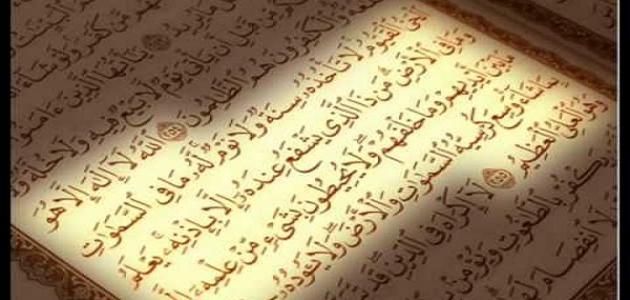 مَا يُرِيدُ ۝ يَٰٓأَيُّهَا ٱلَّذِينَ ءَامَنُوٓا۟
مِّن قَبْلِ أَن يَأْتِىَ يَوْمٌ لَّا بَيْعٌ فِيهِ وَلَا خُلَّةٌ وَلَا
وَٱلْكَٰفِرُونَ هُمُ ٱلظَّٰلِمُونَ ۝ ٱللَّهُ لَآ إِلَٰهَ إِلَّا هُوَ
ٱلْحَىُّ ٱلْقَيُّومُ لَا تَأْخُذُهُۥ سِنَةٌ وَلَا نَوْمٌ لَّهُۥ مَا فِى ٱلسَّمَٰوَٰتِ
وَمَا فِى ٱلْأَرْضِ مَن ذَا ٱلَّذِى يَشْفَعُ عِندَهُۥٓ إِلَّا بِإِذْنِهِۦ يَعْلَمُ
مَا بَيْنَ أَيْدِيهِمْ وَمَا خَلْفَهُمْ وَلَا يُحِيطُونَ بِشَىْءٍ مِّنْ عِلْمِهِۦٓ إِلَّا
بِمَا شَآءَ وَسِعَ كُرْسِيُّهُ ٱلسَّمَٰوَٰتِ وَٱلْأَرْضَ وَلَا يَـُٔودُهُۥ
وَهُوَ ٱلْعَلِىُّ ٱلْعَظِيمُ ۝ لَآ إِكْرَاهَ فِى ٱلدِّينِ قَد
يَكْفُرْ بِٱلطَّٰغُوتِ وَيُؤْمِنۢ
لَا ٱنفِصَامَ